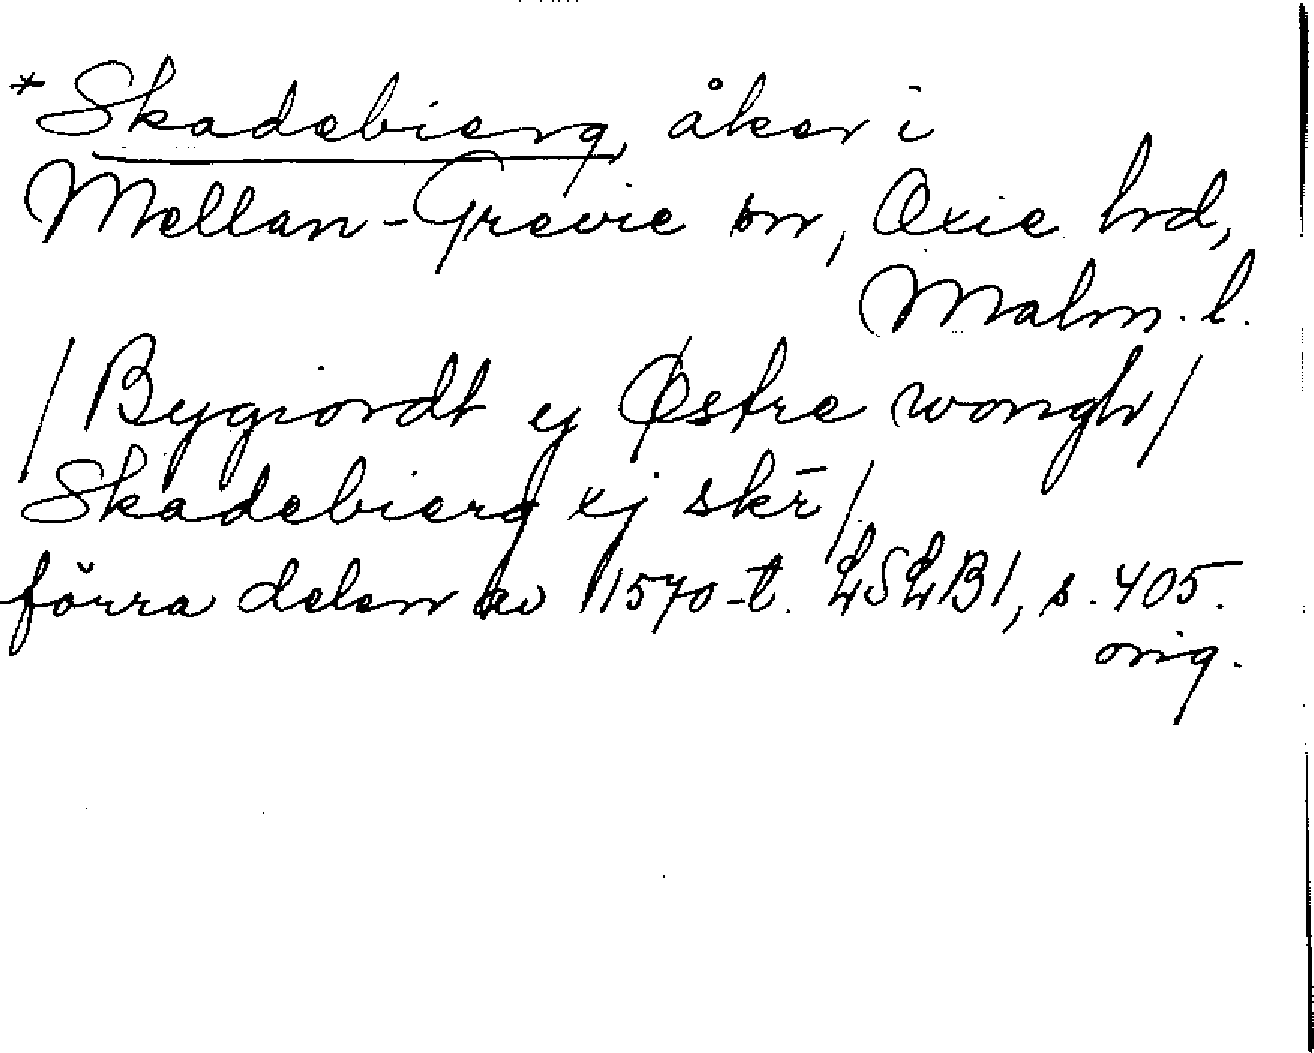 *Skadebierg, åker i
Mellan-Grevie sn, Oxie hrd,
Malm. l.
/Bygiordt ij Østre wongh/
Skadebierg ij skr̄/
förra delen av 1570-t. LSLB1, s. 405.
orig.